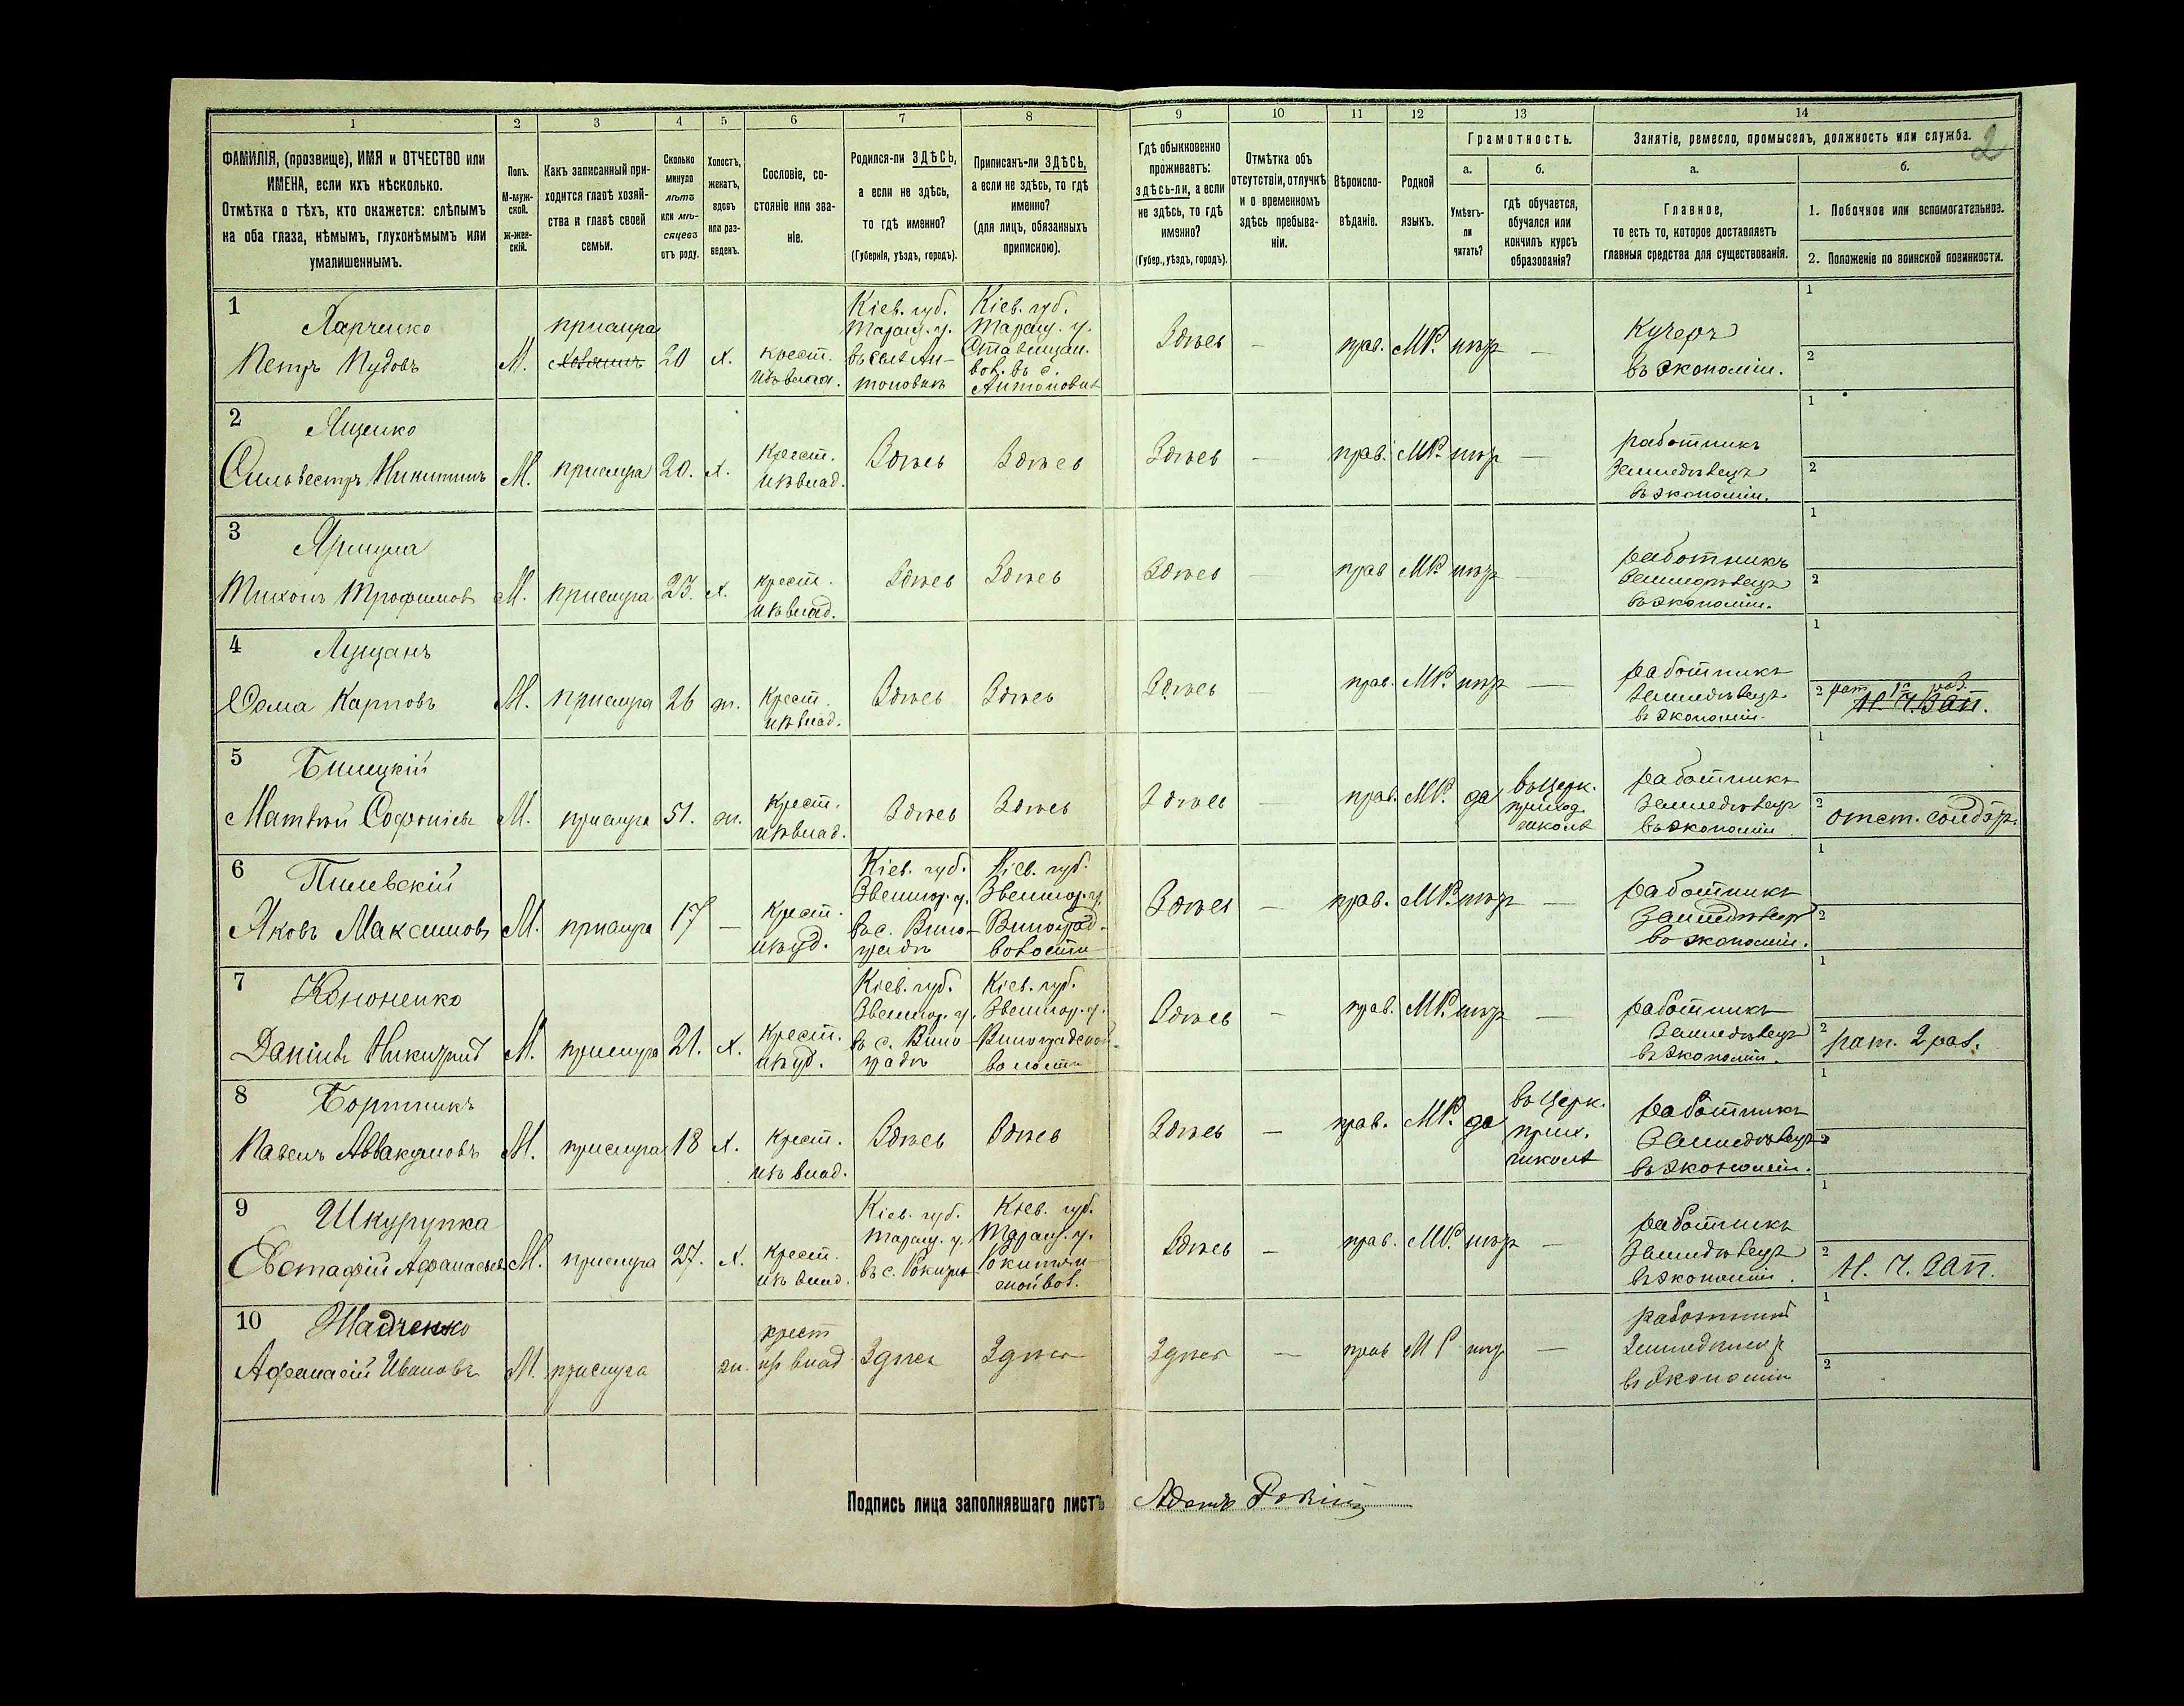 1 2 3 4 5 6 7 8 9 10 11 12 13 14
2
ФАМИЛІЯ, (прозвище), ИМЯ и ОТЧЕСТВО или
ИМЕНА, если ихъ нѣсколько.
Отмѣтка о тѣхъ, кто окажется: слѣпымъ
на оба глаза, нѣмымъ, глухонѣмымъ или
умалишеннымъ.
Полъ.
М-муж-
ской.
ж-жен-
скій.
Какъ записанный при-
ходится главѣ хозяй-
ства и главѣ своей
семьи.
Сколько
минуло
лѣтъ
или мѣ-
сяцевъ
отъ роду.
Холостъ,
женатъ,
вдовъ
или раз-
веденъ.
Сословіе, со-
стояніе или зва-
ніе.
Родился-ли ЗДѢСЬ,
а если не здѣсь,
то гдѣ именно?
(Губернія, уѣздъ, городъ).
Приписанъ-ли ЗДѢСЬ,
а если не здѣсь, то гдѣ
именно?
(для лицъ, обязанныхъ
припискою).
Гдѣ обыкновенно
проживаетъ:
здѣсь-ли, а если
не здѣсь, то гдѣ
именно?
(Губер., уѣздъ, городъ).
Отмѣтка объ
отсутствіи, отлучкѣ
и о временномъ
здѣсь пребыва-
ніи.
Вѣроиспо-
вѣданіе.
Родной
языкъ.
Грамотность.
а.
Умѣетъ-
ли
читать?
б.
гдѣ обучается,
обучался или
кончилъ курсъ
образованія?
Занятіе, ремесло, промыселъ, должность или служба.
а.
Главное,
то есть то, которое доставляетъ
главныя средства для существованія.
б.
1. Побочное или вспомогательное.
2. Положеніе по воинской повинности.
1
Харченко
Петръ Пудовъ
М.
прислуга
20
х.
крест.
Кіев. губ.
Таращ. у.
Кіев. губ.
Таращ. у.
вол. въ с.
Здѣсь
—
прав.
МР.
нѣтъ
—
Кучеръ
въ экономіи.
1
2
2
Ященко
Сильвестръ Никитинъ
М.
прислуга
20.
х.
крест.
из влад.
Здѣсь
Здѣсь
Здѣсь
—
прав.
МР.
нѣтъ
—
работникъ
Земледѣлецъ
въ экономіи.
1
2
3
Тихонъ Трофимовъ
М.
прислуга
23.
х.
крест.
из влад.
Здѣсь
Здѣсь
Здѣсь
—
прав
МР.
нѣтъ
—
работникъ
Земледѣлецъ
въ экономіи.
1
2
4
Лущанъ
Ѳома Карповъ
М.
прислуга
26
ж.
крест.
из влад.
Здѣсь
Здѣсь
Здѣсь
прав.
МР.
нѣтъ
—
работникъ
Земледѣлецъ
въ экономіи.
1
2 рат. 1й раз.
Н. Ч. Зап.
5
Билецкій
Матвѣй Софоніевъ
М.
прислуга
51.
ж.
крест.
из влад.
Здѣсь
Здѣсь
Здѣсь
—
прав.
МР.
да
въ церк.
приход.
школѣ
работникъ
Земледѣлецъ
въ экономіи
1
2
6
Пилевскій
Яковъ Максимовъ
М.
прислуга
17
—
крест.
Кіев. губ.
Звениг. у.
въ с. Вино-
градѣ
Кіев. губ.
Звениг. у.
Виноград.
волости
Здѣсь
—
прав.
МР.
нѣтъ
—
работникъ
Земледѣлецъ
въ экономіи.
1
2
7
Кононенко
М.
прислуга
21.
х.
крест.
Кіев. губ.
Звениг. у.
въ с. Вино
градѣ
Кіев. губ.
Звениг. у.
Виноградской
волости
Здѣсь
—
прав.
МР.
нѣтъ
—
работникъ
Земледѣлецъ
въ экономіи.
1
2
рат. 2 раз.
8
Бортникъ
Павелъ Аввакумовъ
М.
прислуга
18
х.
крест.
из влад.
Здѣсь
Здѣсь
Здѣсь
—
прав.
МР.
да
въ церк.
прих.
школѣ
работникъ
Земледѣлецъ
въ экономіи.
1
2
9
Шкурупка
Евстафій Афанасьевъ
М.
прислуга
27.
х.
крест.
из влад.
Кіев. губ.
Таращ. у.
Кіев. губ.
Таращ. у.
Рокитян
ской вол.
Здѣсь
—
прав.
МР.
нѣтъ
—
работникъ
Земледѣлецъ
въ экономіи.
1
2
Н. Ч. Зап.
10
Шадченко
Афанасій Ивановъ
М.
прислуга
ж.
крест
из влад
Здѣсь
Здѣсь
Здѣсь
—
прав
МР
нѣтъ
—
въ экономіи
1
2
Подпись лица заполнявшаго листъ